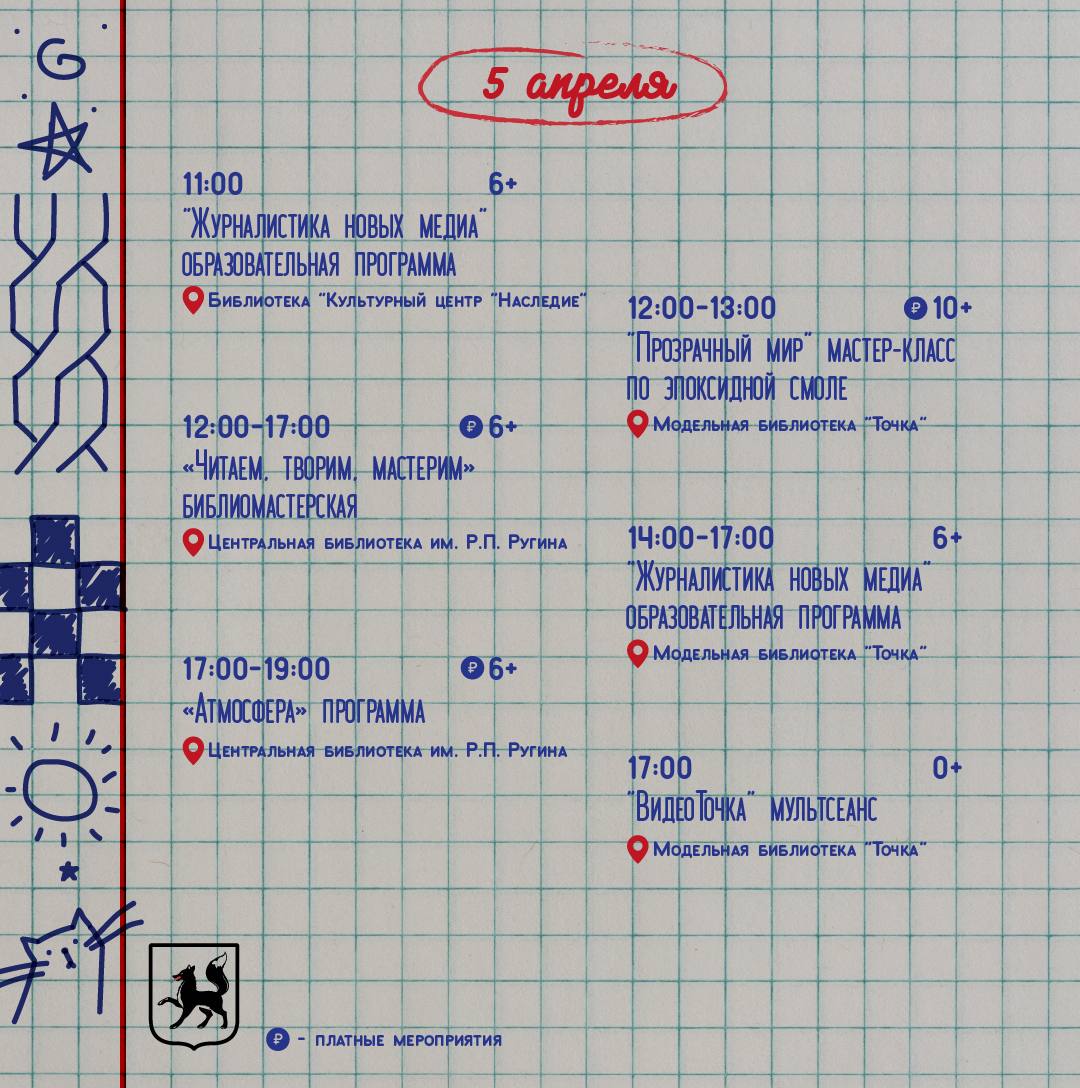 5 апреля
11:00 6+
"Журналистика новых медиа"
образовательная программа
Библиотека "Культурный центр "Наследие"
12:00-17:00 ₽ 6+
«Читаем, творим, мастерим»
библиомастерская
Центральная библиотека им. Р.П. Ругина
17:00-19:00 ₽ 6+
«Атмосфера» программа
Центральная библиотека им. Р.П. Ругина
12:00-13:00 ₽ 10+
"Прозрачный мир" мастер-класс
по эпоксидной смоле
Модельная библиотека "Точка"
14:00-17:00 6+
"Журналистика новых медиа"
образовательная программа
Модельная библиотека "Точка"
17:00 0+
"ВидеоТочка" мультсеанс
Модельная библиотека "Точка"
₽ - платные мероприятия